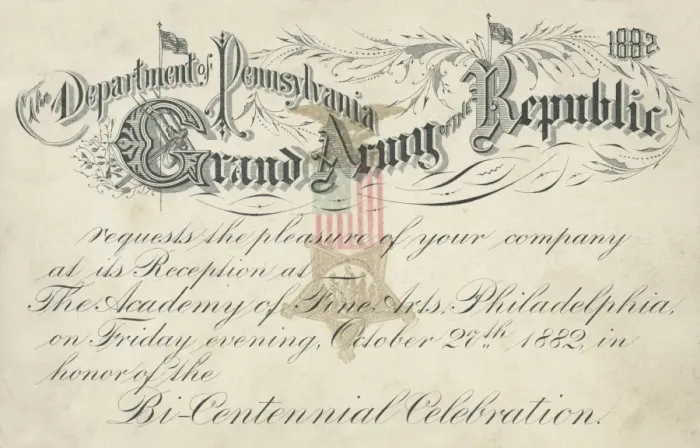 1882.
The Department of Pennsylvania
Grand Army OF THE Republic
requests the pleasure of your company
at its Reception at
The Academy of Fine Arts, Philadelphia,
on Friday evening, October 27th 1882, in
honor of the
Bi-Centennial Celebration.